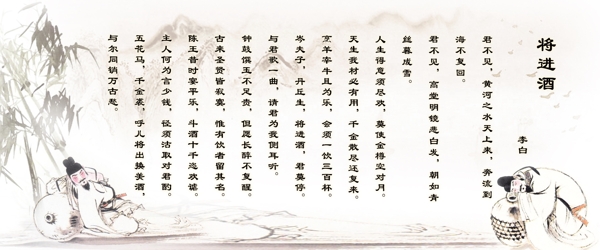 将进酒
李白
君不见，黄河之水天上来，奔流到
海不复回。
君不见，高堂明镜悲白发，朝如青
丝暮成雪。
人生得意须尽欢，莫使金樽空对月。
天生我材必有用，千金散尽还复来。
烹羊宰牛且为乐，会须一饮三百杯。
岑夫子，丹丘生，将进酒，君莫停。
与君歌一曲，请君为我侧耳听。
钟鼓馔玉不足贵，但愿长醉不复醒。
古来圣贤皆寂寞，惟有饮者留其名。
陈王昔时宴平乐，斗酒十千恣欢谑。
主人何为言少钱，径须沽取对君酌。
五花马，千金裘，呼儿将出换美酒，
与尔同销万古愁。